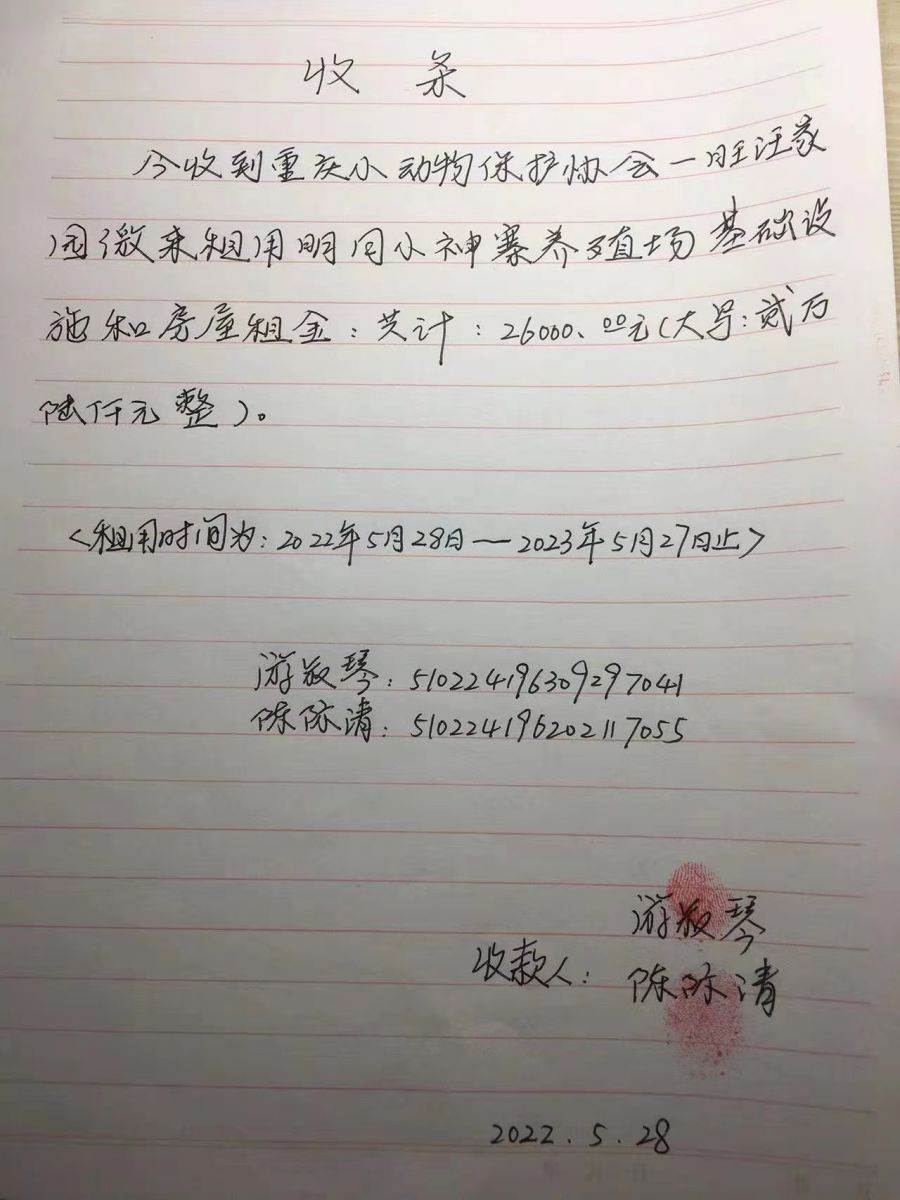 收 条
今收到重庆小动物保护协会一旺汪家
园缴来租用明月小神寨养殖场基础设
施和房屋租金：共计：26000.00元（大写：贰万
陆仟元整）。
<租用时间为：2022年5月28日—2023年5月27日止>
游敏琴：510224196309297041
陈际清：510224196202117055
游敏琴
收款人：陈际清
2022.5.28